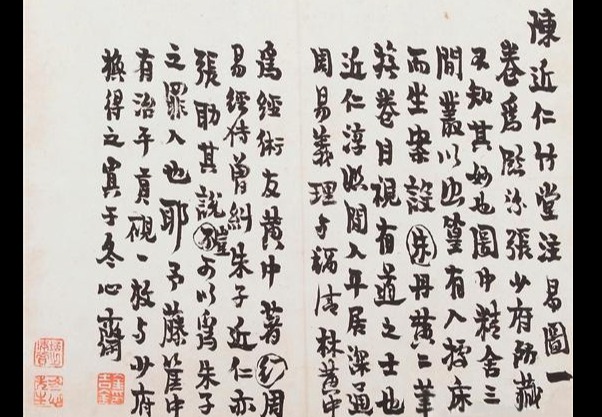 陳近仁竹堂注易圖一
卷爲張少府所藏
不知其妙也圖中精舍三
間叢以幽篁有人據床
而坐案設朱丹黄二筆
卷目視有道之士也
近仁淳熙閩人平居深通
周易義理与福清林黄中
爲經術友黄中著周
易經傳曾糾朱子近仁亦
張助其說可以爲朱子
之罪人也耶予藤篋中
有治平貢硯一枚与少府
換得之寘于冬心齋